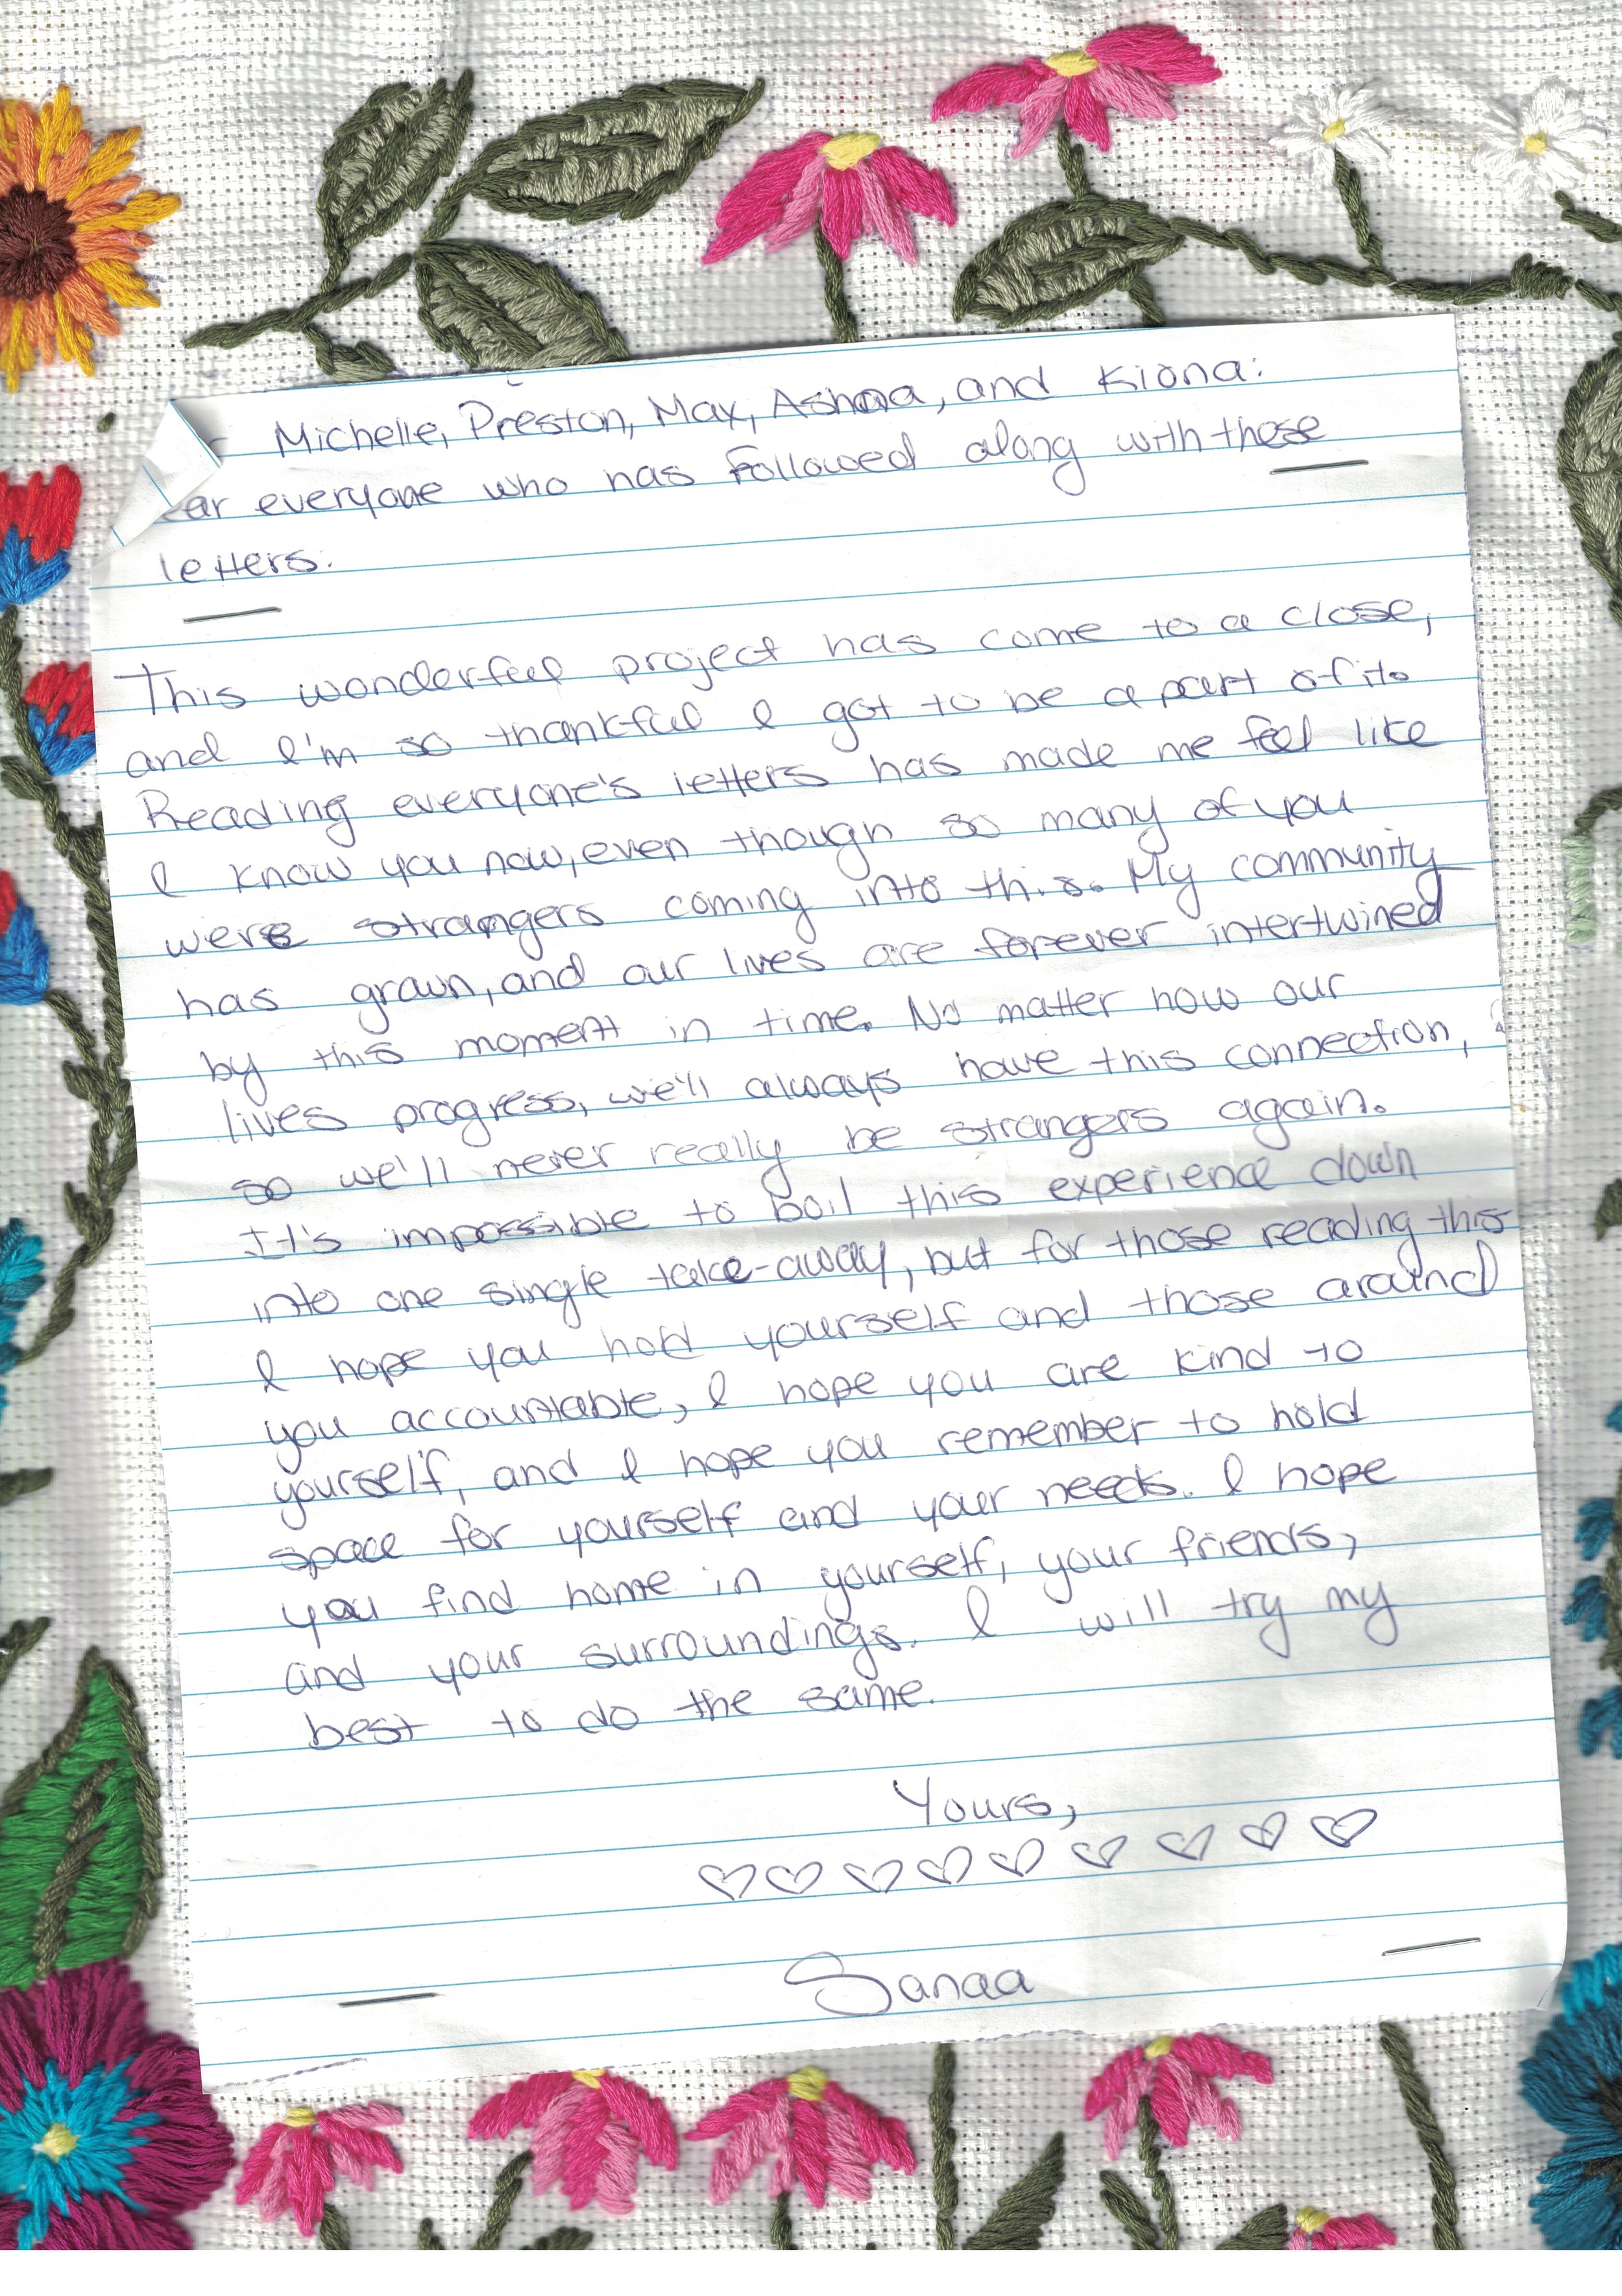 Michelle, Preston, Max, Ashaa, and Kiona:
ear everyone who has followed along with these
letters:
This wonderful project has come to a close,
and I'm so thankful I got to be a part of it.
Reading everyone's letters has made me feel like
I know you now, even though so many of you
were strangers coming into this. My community
has grown, and our lives are forever intertwined
by this moment in time. No matter how our
lives progress, we'll always have this connection,
so we'll never really be strangers again.
It's impossible to boil this experience down
into one single take-away, but for those reading this
I hope you hold yourself and those around
you accountable, I hope you are kind to
yourself, and I hope you remember to hold
space for yourself and your needs. I hope
you find home in yourself, your friends,
and your surroundings. I will try my
best to do the same.
Yours,
Sanaa